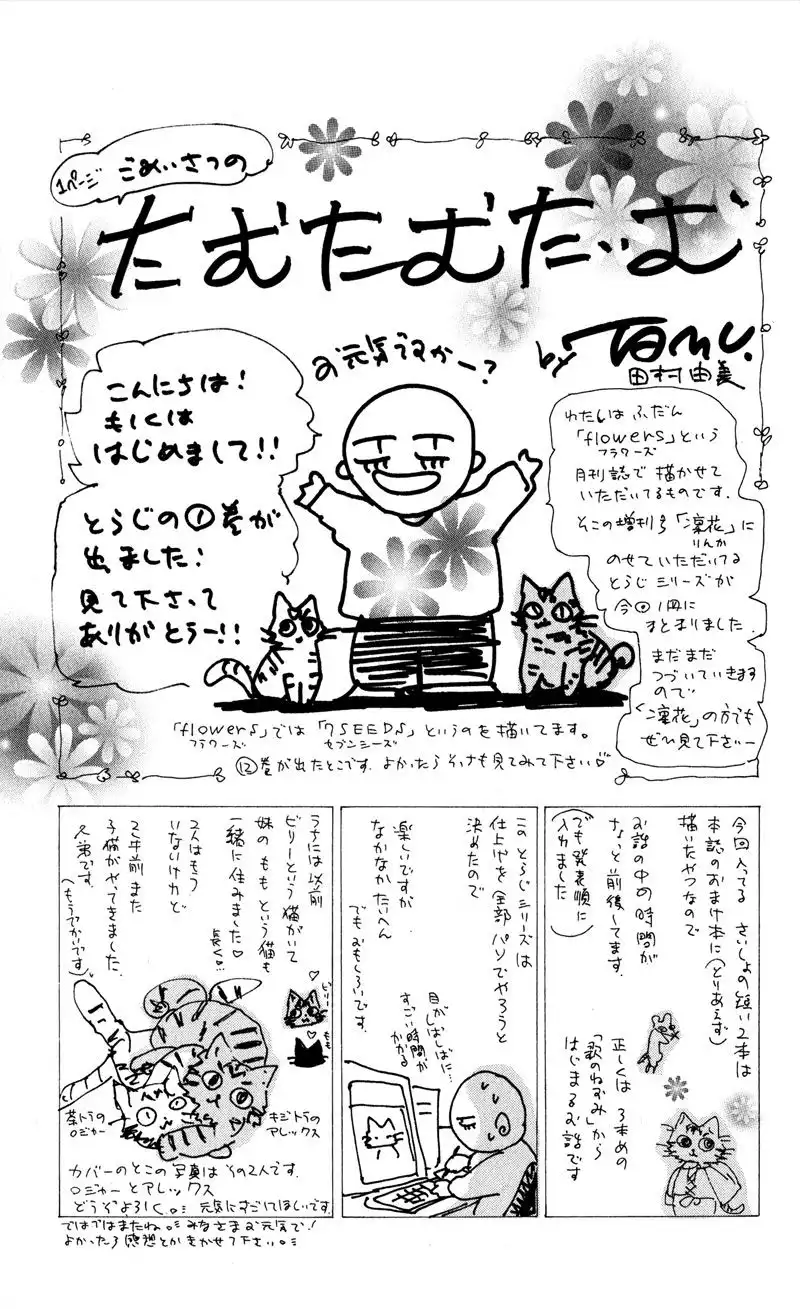 1ページ ごあいさつの
たむたむたいむ
by TAMU.
田村由美
お元気ですかー?
こんにちは!
もしくは
はじめまして!!
とらじの①巻が
出ました!
見て下さって
ありがとうー!!
わたしは ふだん
「flowers」という
フラワーズ
月刊誌で描かせて
いただいてるものです.
そこの増刊号「凛花」に
りんか
のせていただいてる
とらじシリーズが
今回1冊に
まとまりました.
まだまだ
つづいていきます
ので
「凛花」の方でも
ぜひ見て下さいー
「flowers」では「7SEEDS」というのを描いてます。
フラワーズ
セブンシーズ
⑫巻が出たとこです.よかったらそっちも見てみて下さい♡
今回入ってる さいしょの短い2本は
本誌のおまけ本に(とりあえず)
描いたやつなので
お話の中の時間が
ちょっと前後してます.
(でも発表順に
入れました)
正しくは 3本めの
「歌のねずみ」から
はじまるお話です
このとらじシリーズは
仕上げを全部パソでやろうと
決めたので
楽しいですが
なかなかたいへん
でもおもしろいです.
目がしぱしぱに…
すごい時間が
かかる
うちには以前
ビリーという猫がいて
妹のももという猫も
一緒に住みました♡
長く…
2人はもう
いないけれど
2年前また
子猫がやってきました.
兄弟です.
(もうでかいです)
ビリー
もも
茶トラの
ロジャー
キジトラの
アレックス
カバーのとこの写真はその2人です.
ロジャーとアレックス
どうぞよろしく。元気にすごしてほしいです.
ではではまたね。みなさまお元気で!
よかったら感想とかきかせて下さい。